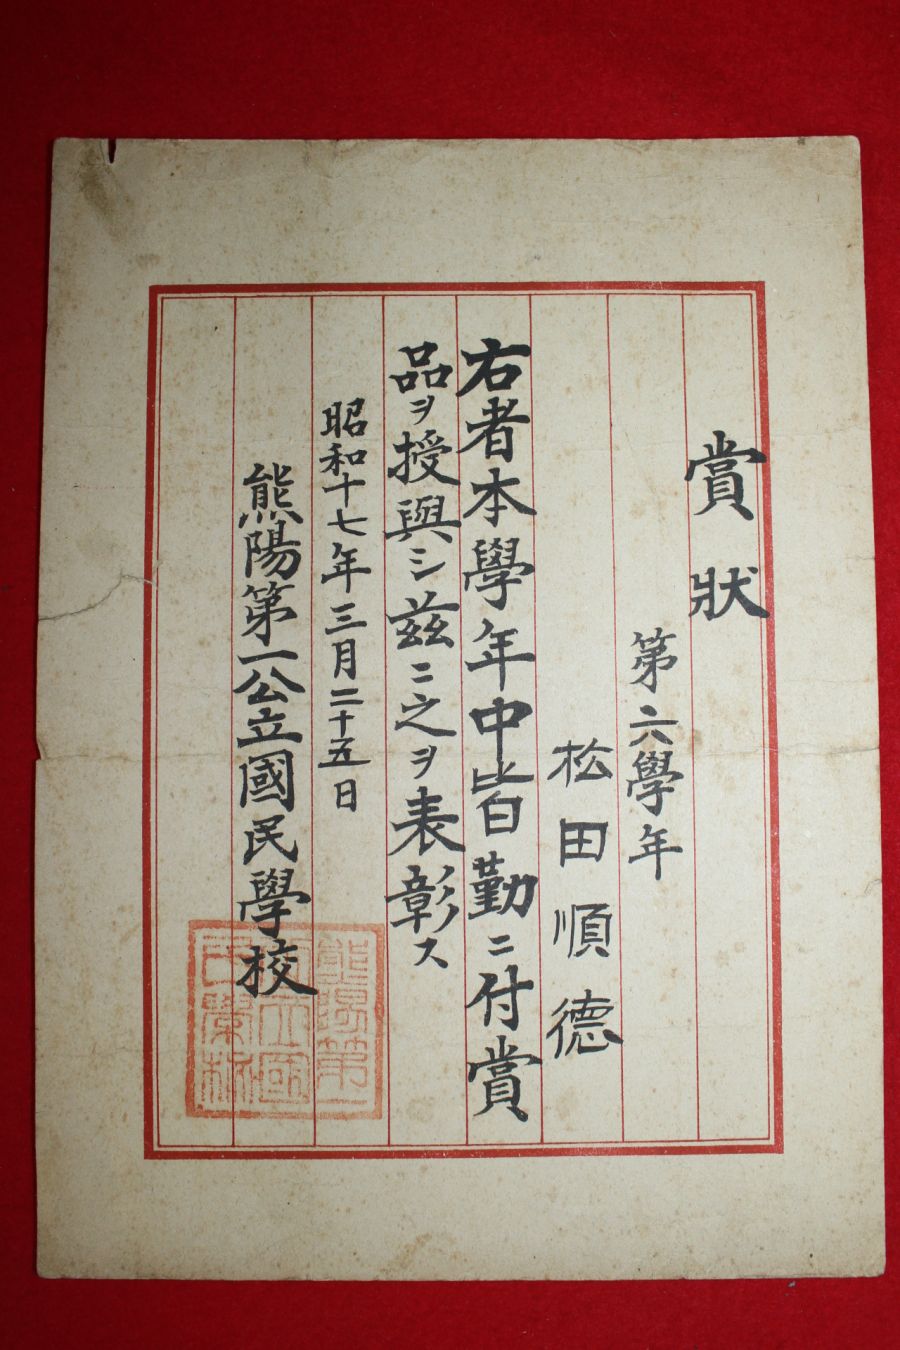 賞狀
第六學年
松田順德
右者本學年中皆勤ニ付賞
品ヲ授與シ茲ニ之ヲ表彰ス
昭和十七年三月二十五日
熊陽第一公立國民學校
熊陽第一
公立國
民學校